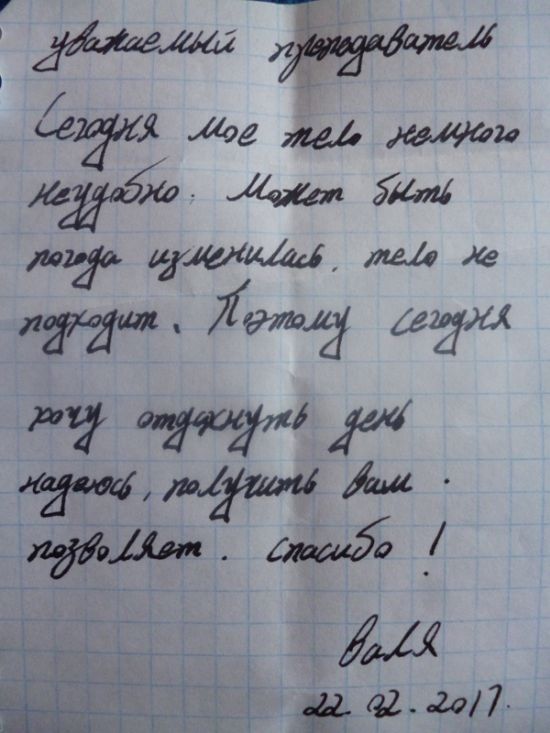 уважаемый преподаватель
Сегодня мое тело немного
неудобно. Может быть
погода изменилась, тело не
подходит. Поэтому сегодня
хочу отдохнуть день
надаюсь, получить вам.
позволяет. спасибо!
Валя
22.02.2017.